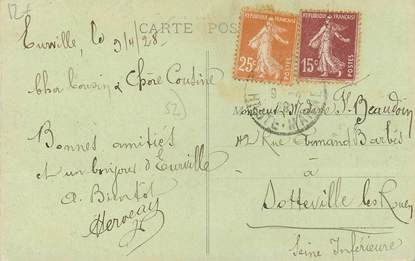 12 f
CARTE POS
Eurville, le 9/4/28
Cher Cousin & Chère Cousine
Bonnes amitiés
et un bonjour d'Eurville
A. Bientot
Herveau
52
REPUBLIQUE FRANÇAISE
25c
POSTES
REPUBLIQUE FRANÇAISE
15c
POSTES
Monsieur Madame F. Beaudoin
42 Rue Armand Barbès
à
Sotteville les Rouen
Seine Inférieure